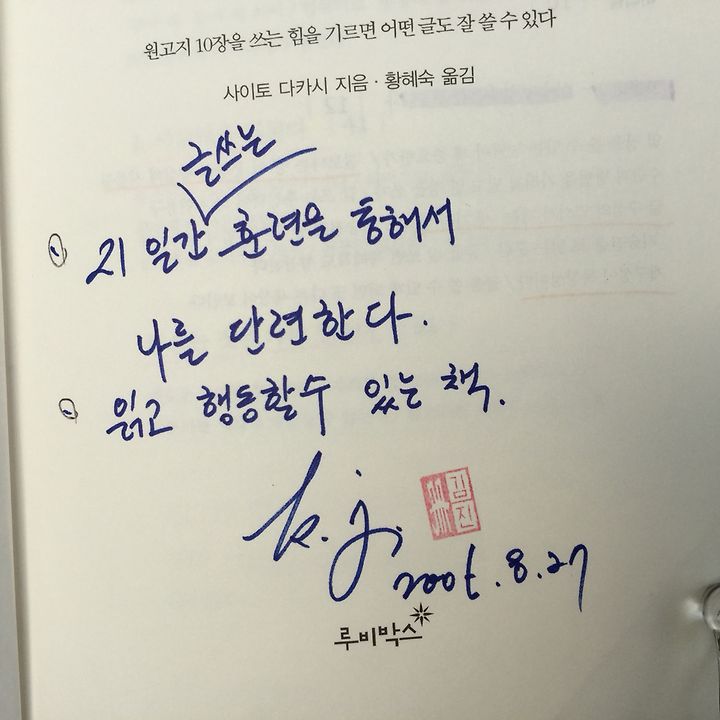 원고지 10장을 쓰는 힘을 기르면 어떤 글도 잘 쓸 수 있다
사이토 다카시 지음 · 황혜숙 옮김
글쓰는
21 일간 훈련을 통해서
나를 단련한다.
읽고 행동할수 있는 책.
k.j.
김진
8.27
루비박스